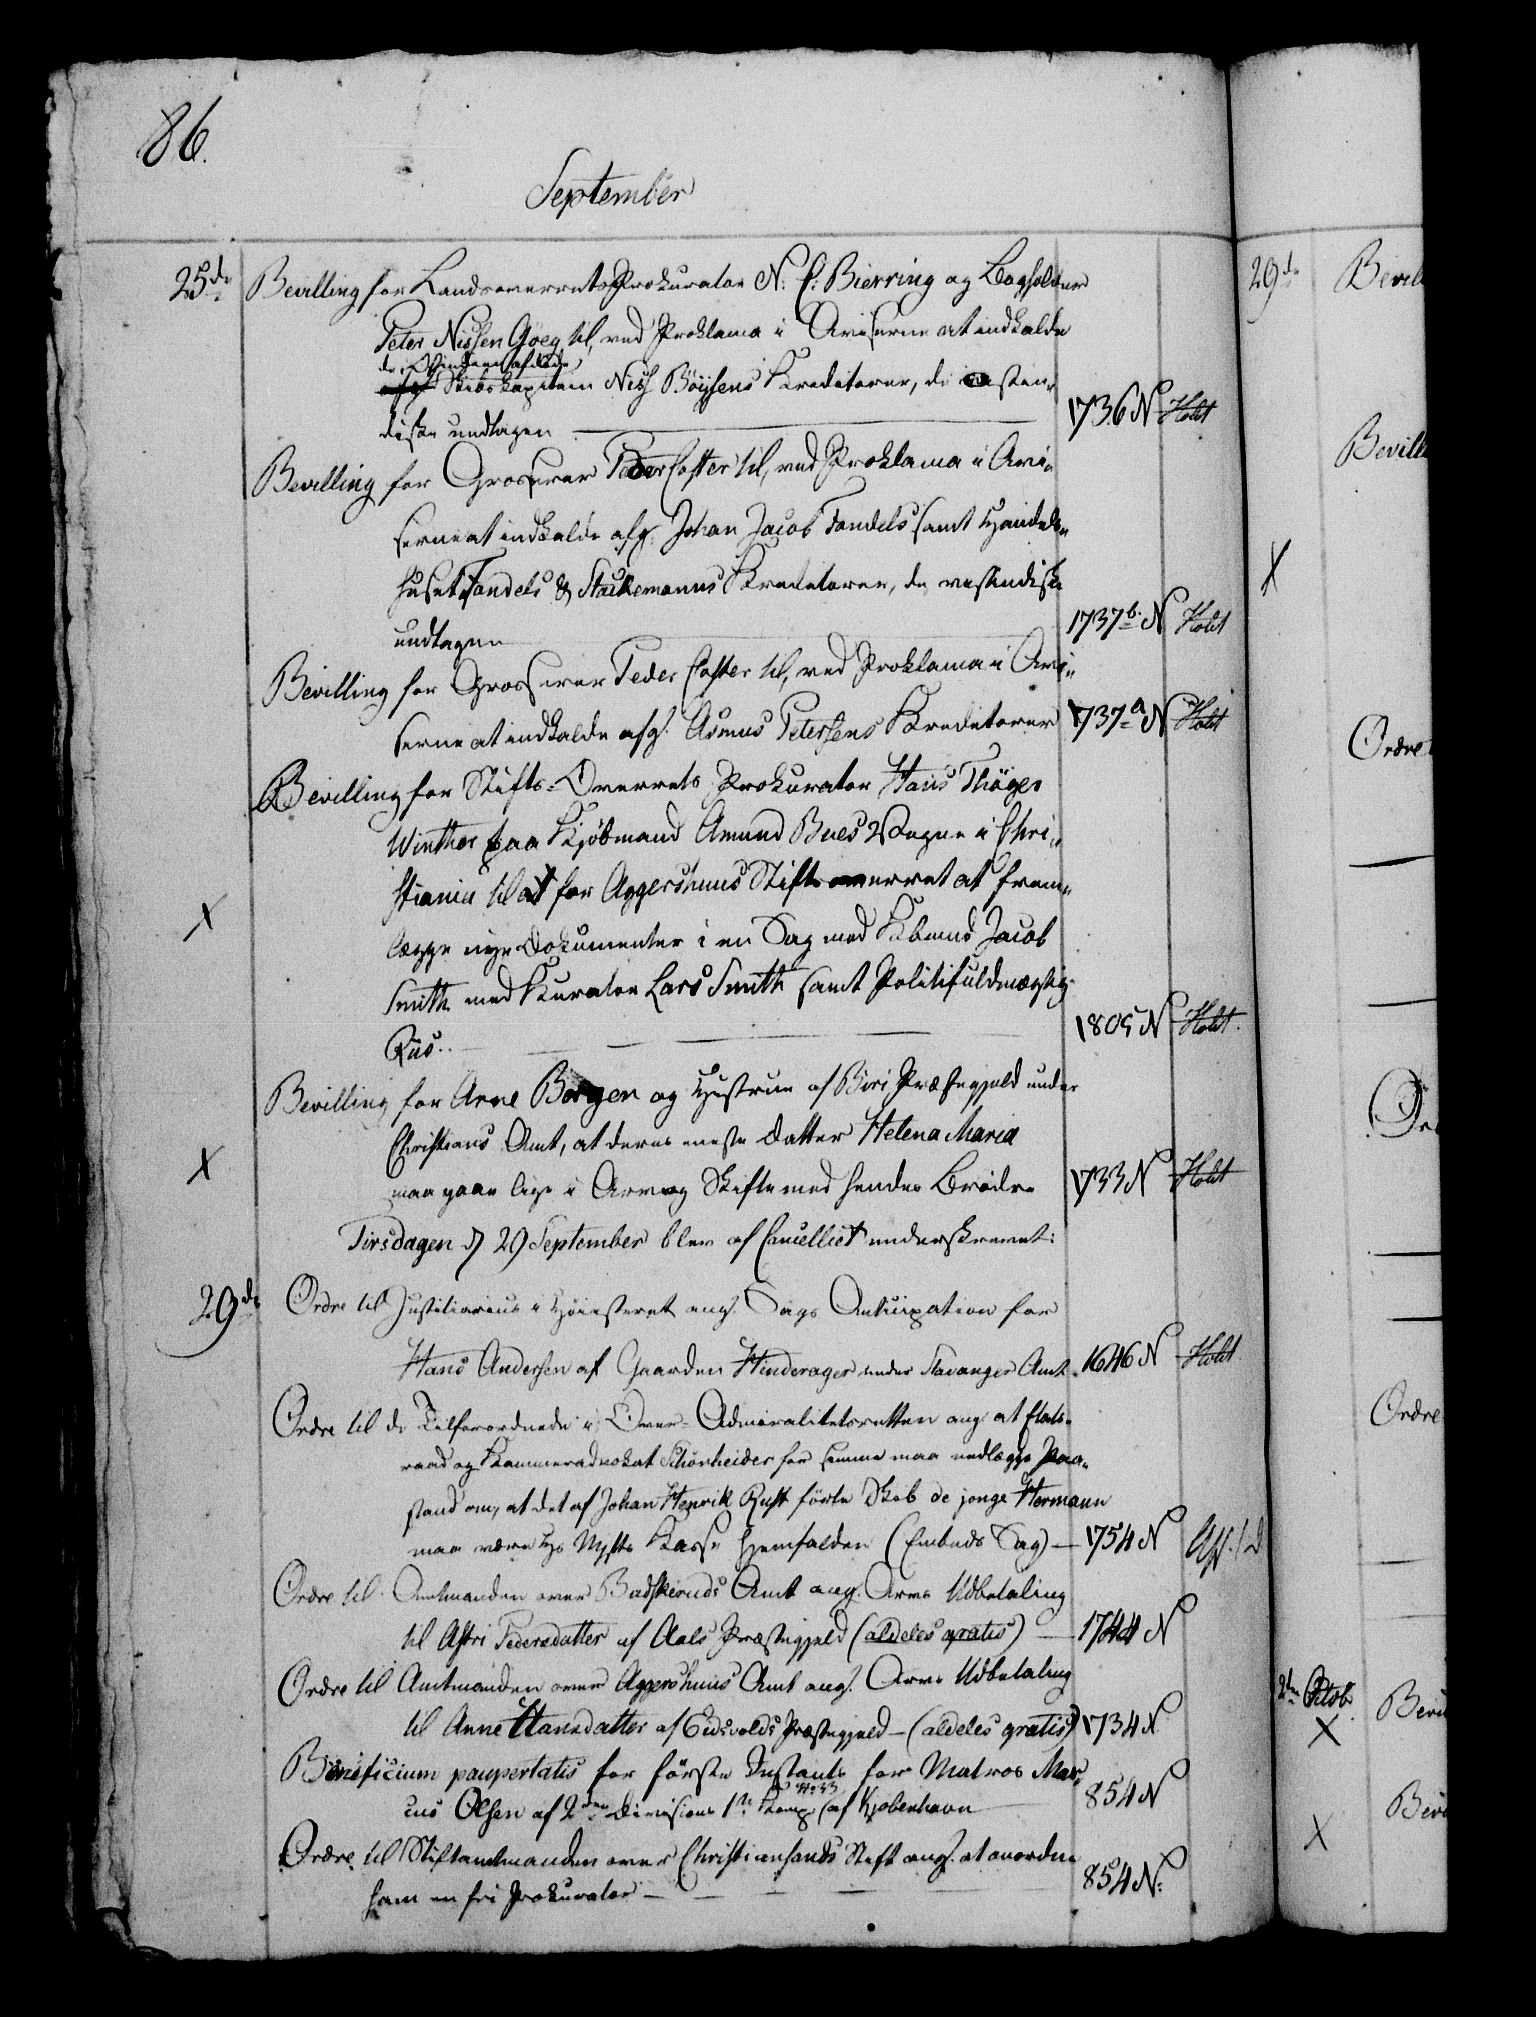 86.
September
25de Bevilling for Landsoverrets Prokurator N. C. Bierring og Bogholder
Peter Nissen Göeg til, ved Proklama i Aviserne at indkalde
de Ostindien afdøde
Skibskapitain Niss Böysens Kreditorer, de ostin-
diske undtagen 1736 N Holst
Bevilling for Grosserer Peder Coster til, ved Proklama i Avi-
serne at indkalde afg. Johan Jacob Tandels samt Handels-
huset Tandels & Stackemanns Kreditorer, de vestindiske
undtagen 1737b. N Holst
Bevilling for Grosserer Peder Coster til, ved Proklama i Avi-
serne at indkalde afg. Asmus Petersens Kreditorer 1737a N Holst
Bevilling for Stifts-Overrets Prokurator Hans Thöger
Winther paa Kjöbmand Amund Bues Vegne i Chri-
stiania til at for Aggershuus Stiftsoverret at frem-
lægge nye Dokumenter i en Sag med Kbmd Jacob
Smith med Kurator Lars Smith samt Politifuldmægtig
Rüs. 1805 N Holst.
Bevilling for Arne Borgen og Hustrue af Biri Præstegjeld under
Christians Amt, at deres eneste Datter Helena Maria
maa gaae lige i Arv og Skifte med hendes Brödre 1733 N Holst
Tirsdagen d 29 September blev af Cancelliet underskrevet:
29de Ordre til Justitiarius i Höiesteret ang. Sags Anticipation for
Hans Andersen af Gaarden Hinderager under Stavanger Amt 1646 N Holst
Ordre til de Tilforordnede i Over-Admiralitetsretten ang. at Etats-
raad og Kammeradvokat Schönheider for samme maa nedlægge Paa-
stand om, at det af Johan Henrik Rust förte Skib de jonge Hermann
maa være Hs Mysts Kasse hjemfalden (Embeds Sag) 1754 N
Ordre til Amtmanden over Budskeruds Amt ang. Arve Udbetaling
til Astri Pedersdatter af Aals Præstegjeld (aldeles gratis) 1744 N
Ordre til Amtmanden over Aggershuus Amt ang. Arve Udbetaling
til Anne Hansdatter af Eidsvolds Præstegjeld (aldeles gratis) 1734 N
Beneficium paupertatis for förste Instants for Matros Mar-
No 33
cus Olsen af 2den Divisions 1ste Komp. (af Kjöbenhavn 854 N
Ordre til Stiftamtmanden over Christiansands Stift ang. at anordne
ham en fri Prokurator 854 N.
29de Bevil
Bevill
Ordre
Or
Ordre
2den Octob. Bevi
Bevi